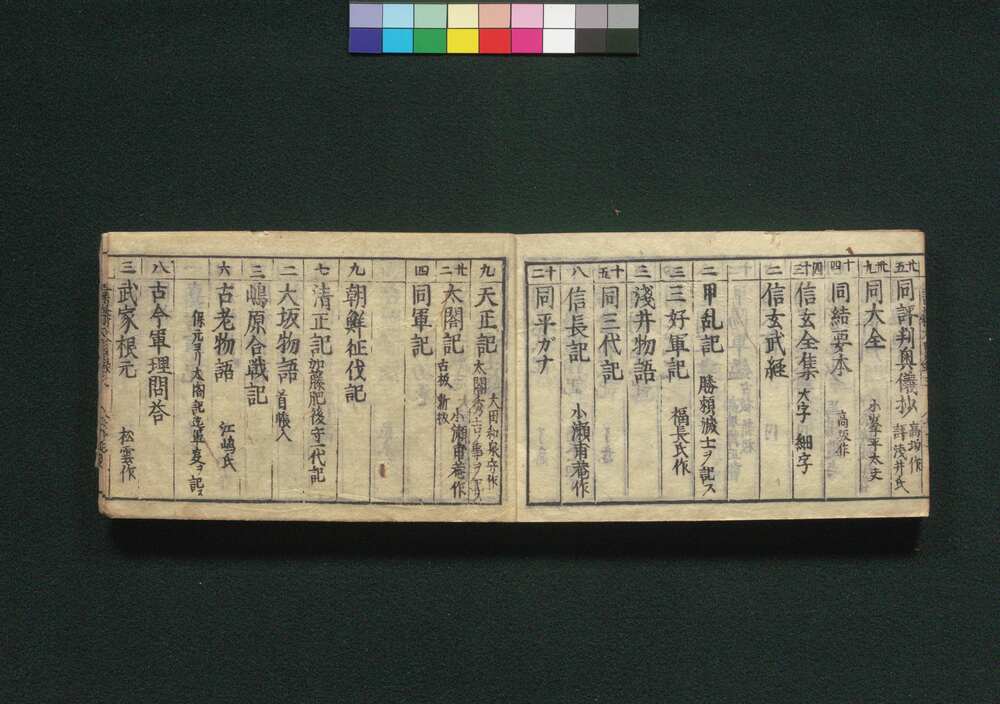 廿五 同評判奥儀抄 高坂作 評浅井氏
廿九 同大全 小笠平太夫
十四 同結要本 高坂作
四十三 信玄全集 大字 細字
二 信玄武経
二 甲乱記 勝頼滅亡ヲ記ス
三 三好軍記 福長氏作
三 淺井物語
十五 同三代記
八 信長記 小瀬甫菴作
十二 同平ガナ
九 天正記 太田和泉守作
廿二 太閤記 古板 新板 小瀬甫菴作
四 同軍記
九 朝鮮征伐記
七 清正記 加藤肥後守一代記
二 大坂物語 首帳入
三 嶋原合戦記
六 古老物語 江嶋氏
保元ヨリ太閤記迄軍変ヲ記ス
八 古今軍理問荅
三 武家根元 松雲作